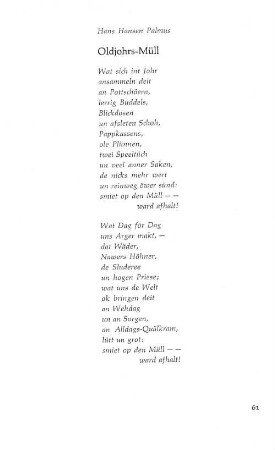 Hans Hansen Palmus
Oldjohrs-Müll
Wat sich int Johr
ansammeln deit
an Pottschöern,
lerrig Buddels,
Blickdosen
un afsleten Schoh,
Pappkassens,
ole Plünnen,
twei Speeltüch
un veel anner Saken,
de nicks mehr wert
un reinweg över sünd:
smiet op den Müll — —
ward afhalt!
Wat Dag för Dag
uns Arger makt, —
dat Wäder,
Nawers Höhner,
de Sluderee
un hogen Priese;
wat uns de Welt
ok bringen deit
an Wehdag
un an Sorgen,
an Alldags-Quälkram,
lütt un grot:
smiet op den Müll — —
ward afhalt!
61